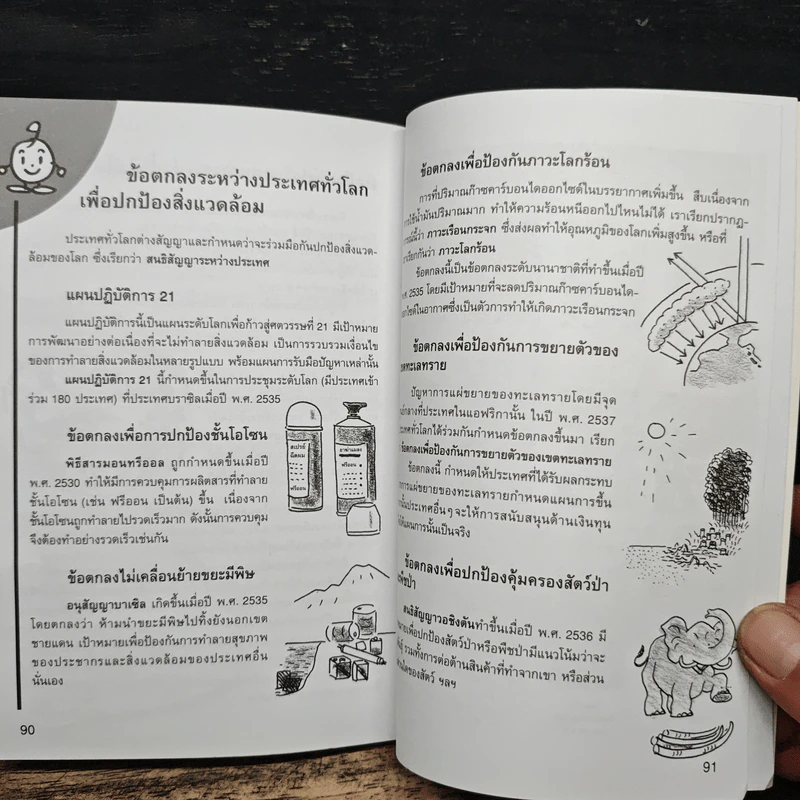 ข้อตกลงระหว่างประเทศทั่วโลก
เพื่อปกป้องสิ่งแวดล้อม
ประเทศทั่วโลกต่างสัญญาและกำหนดว่าจะร่วมมือกันปกป้องสิ่งแวด-
ล้อมของโลก ซึ่งเรียกว่า สนธิสัญญาระหว่างประเทศ
แผนปฏิบัติการ 21
แผนปฏิบัติการนี้เป็นแผนระดับโลกเพื่อก้าวสู่ศตวรรษที่ 21 มีเป้าหมาย
การพัฒนาอย่างต่อเนื่องที่จะไม่ทำลายสิ่งแวดล้อม เป็นการรวบรวมเงื่อนไข
ของการทำลายสิ่งแวดล้อมในหลายรูปแบบ พร้อมแผนการรับมือปัญหาเหล่านั้น
แผนปฏิบัติการ 21 นี้กำหนดขึ้นในการประชุมระดับโลก (มีประเทศเข้า
ร่วม 180 ประเทศ) ที่ประเทศบราซิลเมื่อปี พ.ศ. 2535
ข้อตกลงเพื่อการปกป้องชั้นโอโซน
พิธีสารมอนทรีออล ถูกกำหนดขึ้นเมื่อปี
พ.ศ. 2530 ทำให้มีการควบคุมการผลิตสารที่ทำลาย
ชั้นโอโซน (เช่น ฟรีออน เป็นต้น) ขึ้น เนื่องจาก
ชั้นโอโซนถูกทำลายไปรวดเร็วมาก ดังนั้นการควบคุม
จึงต้องทำอย่างรวดเร็วเช่นกัน
สเปรย์
ฉีดผม
ฟรีออน
ยาฆ่าแมลง
ฟรีออน
ข้อตกลงไม่เคลื่อนย้ายขยะมีพิษ
อนุสัญญาบาเซิล เกิดขึ้นเมื่อปี พ.ศ. 2535
โดยตกลงว่า ห้ามนำขยะมีพิษไปทิ้งยังนอกเขต
ชายแดน เป้าหมายเพื่อป้องกันการทำลายสุขภาพ
ของประชากรและสิ่งแวดล้อมของประเทศอื่น
นั่นเอง
90
ข้อตกลงเพื่อป้องกันภาวะโลกร้อน
การที่ปริมาณก๊าซคาร์บอนไดออกไซด์ในบรรยากาศเพิ่มขึ้น สืบเนื่องจาก
การใช้น้ำมันปริมาณมาก ทำให้ความร้อนหนีออกไปไหนไม่ได้ เราเรียกปรากฏ-
การณ์นี้ว่า ภาวะเรือนกระจก ซึ่งส่งผลทำให้อุณหภูมิของโลกเพิ่มสูงขึ้น หรือที่
เราเรียกกันว่า ภาวะโลกร้อน
ข้อตกลงนี้เป็นข้อตกลงระดับนานาชาติที่ทำขึ้นเมื่อปี
พ.ศ. 2535 โดยมีเป้าหมายที่จะลดปริมาณก๊าซคาร์บอนได-
ออกไซด์ในอากาศซึ่งเป็นตัวการทำให้เกิดภาวะเรือนกระจก
ข้อตกลงเพื่อป้องกันการขยายตัวของ
เขตทะเลทราย
ปัญหาการแผ่ขยายของทะเลทรายโดยมีจุด
ศูนย์กลางที่ประเทศในแอฟริกานั้น ในปี พ.ศ. 2537
ประเทศทั่วโลกได้ร่วมกันกำหนดข้อตกลงขึ้นมา เรียก
ข้อตกลงเพื่อป้องกันการขยายตัวของเขตทะเลทราย
ข้อตกลงนี้ กำหนดให้ประเทศที่ได้รับผลกระทบ
การแผ่ขยายของทะเลทรายกำหนดแผนการขึ้น
ประเทศอื่นๆ จะให้การสนับสนุนด้านเงินทุน
ให้แผนการนั้นเป็นจริง
ข้อตกลงเพื่อปกป้องคุ้มครองสัตว์ป่า
พืชป่า
สนธิสัญญาวอชิงตันทำขึ้นเมื่อปี พ.ศ. 2536 มี
หมายเพื่อปกป้องสัตว์ป่าหรือพืชป่ามีแนวโน้มว่าจะ
รวมทั้งการต่อต้านสินค้าที่ทำจากเขา หรือส่วน
ใดของสัตว์ ฯลฯ
91